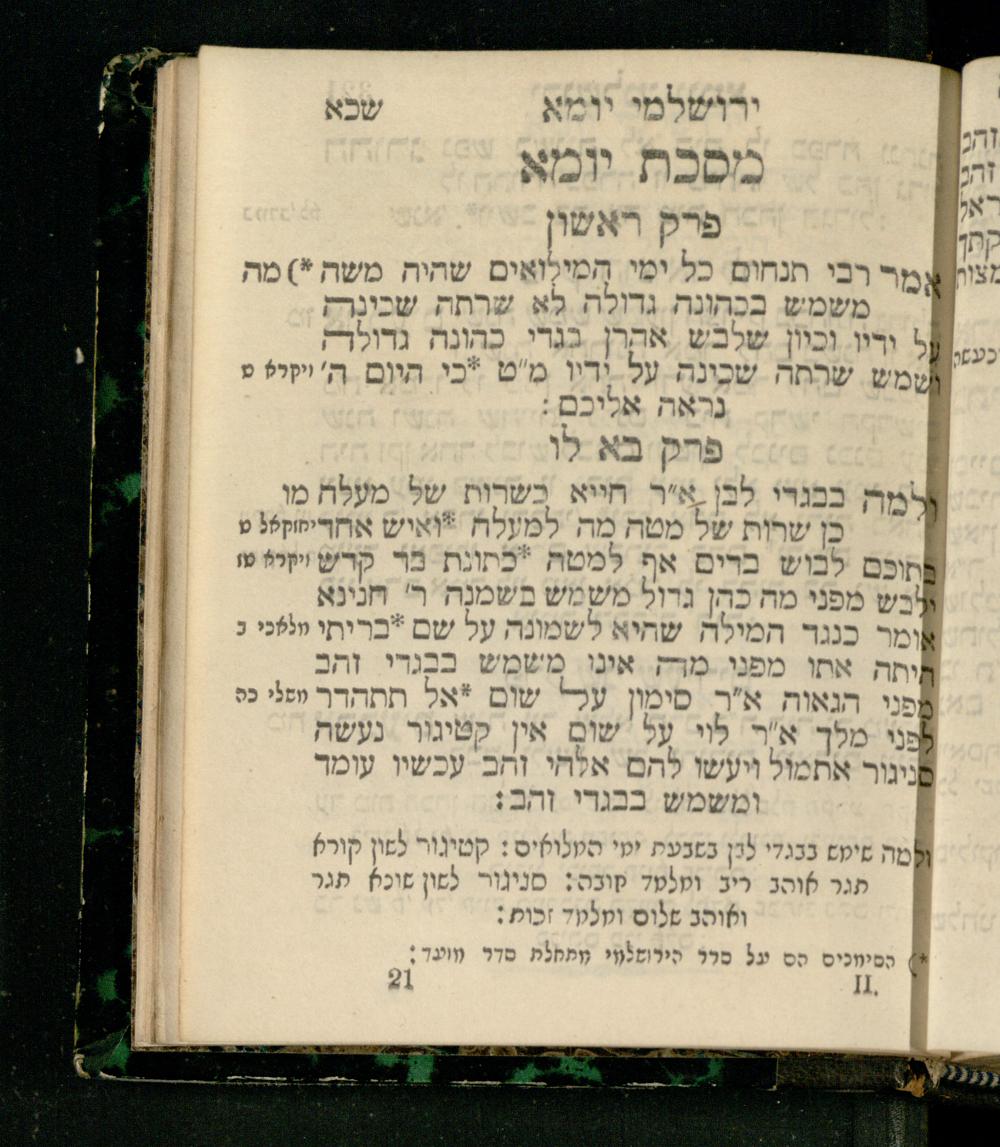 ירושלמי יומא שכא
מסכת יומא
פרק ראשון
אמר רבי תנחום כל ימי המילואים שהיה משה *) מה
משמש בכהונה גדולה לא שרתה שכינה
על ידיו וכיון שלבש אהרן בגדי כהונה גדולה
ושמש שרתה שכינה על ידיו מ״ט *כי היום ה׳ ויקרא ט
נראה אליכם:
פרק בא לו
ולמה בבגדי לבן א״ר חייא כשרות של מעלה מו
כן שרות של מטה מה למעלה *ואיש אחד יחזקאל ט
בתוכם לבוש בדים אף למטה *כתונת בד קדש ויקרא טז
ילבש מפני מה כהן גדול משמש בשמנה ר׳ חנינא
אומר כנגד המילה שהיא לשמונה על שם *בריתי מלאכי ב
היתה אתו מפני מה אינו משמש בבגדי זהב
מפני הגאוה א״ר סימון על שום *אל תתהדר משלי כה
לפני מלך א״ר לוי על שום אין קטיגור נעשה
סניגור אתמול ויעשו להם אלהי זהב עכשיו עומד
ומשמש בבגדי זהב:
ולמה שימש בבגדי לבן בשבעת ימי המלואים: קטיגור לשון קורא
תגר אוהב ריב ומלמד חובה: סניגור לשון שונא תגר
ואוהב שלום ומלמד זכות:
*) הסימנים הם על סדר הירושלמי מתחלת סדר מועד:
II. 21
זהב
זהב
קתך
מצות